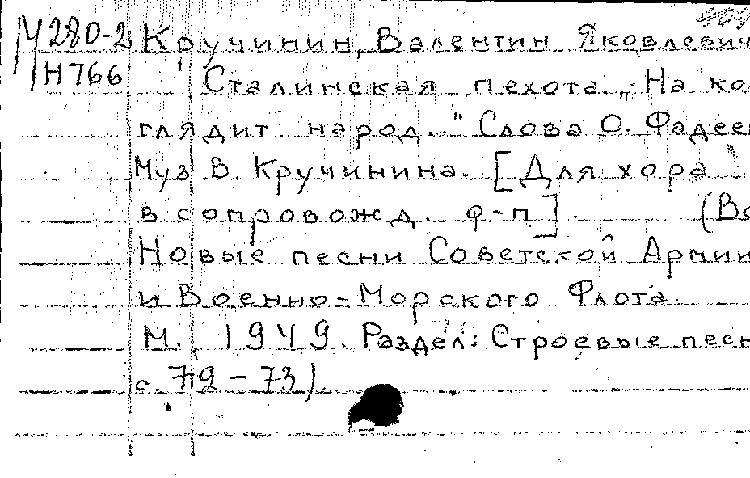 М280-2 Кручинин, Валентин Яковлевич
Н766 Сталинская пехота. „На ко
глядит народ." Слова О. Фадее
Муз В. Кручинина. [Для хора
в сопровожд. ф-п] (Во
Новые песни Советской Армии
и Военно-Морского Флота.
М. 1949. Раздел: Строевые песн
с. 72-73).